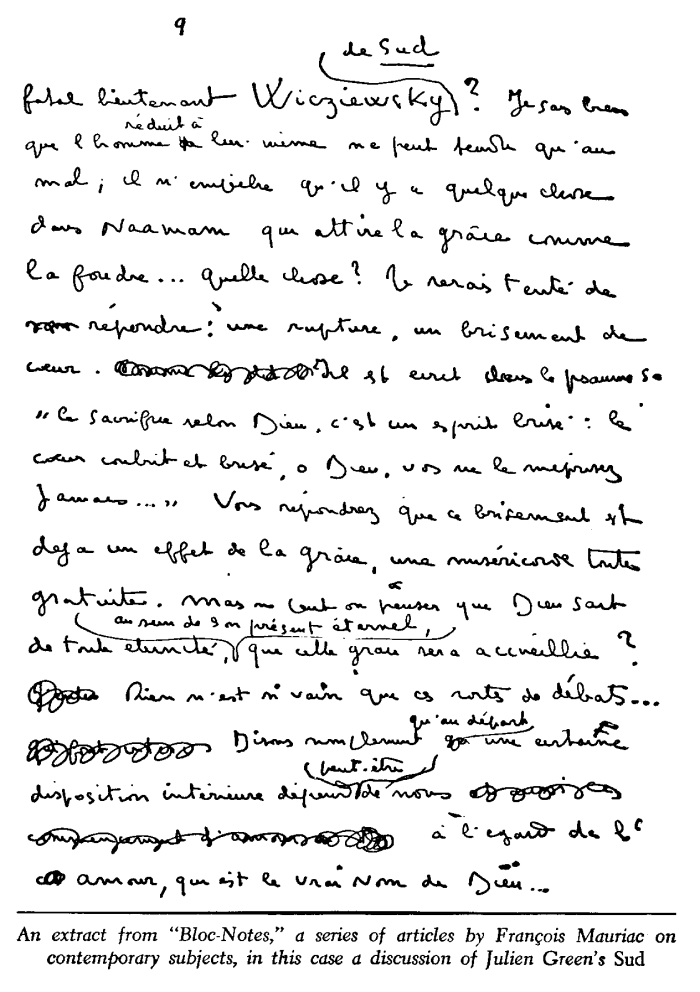 9
de Sud
fatal lieutenant Wicziewsky ? Je sais bien
réduit à
que l'homme lui-même ne peut tendre qu'au
mal ; il n'empêche qu'il y a quelque chose
dans Naamam qui attire la grâce comme
la foudre... quelle chose ? Je serais tenté de
répondre : une rupture, un brisement de
cœur. Il est écrit dans le psaume 50
"le sacrifice selon Dieu, c'est un esprit brisé : le
cœur contrit et brisé, o Dieu, vous ne le méprisez
jamais..." Vous répondrez que ce brisement est
deja un effet de la grâce, une miséricorde toute
gratuite. Mais ne peut on penser que Dieu sait
au sein de son présent éternel,
de toute eternité, que cette grace sera accueillie ?
Rien n'est si vain que ces sortes de débats...
qu'au départ
Disons simplement une certaine
peut-être
disposition intérieure dépend de nous
à l'egard de l'
amour, qui est le vrai nom de Dieu...
An extract from "Bloc-Notes," a series of articles by François Mauriac on
contemporary subjects, in this case a discussion of Julien Green's Sud